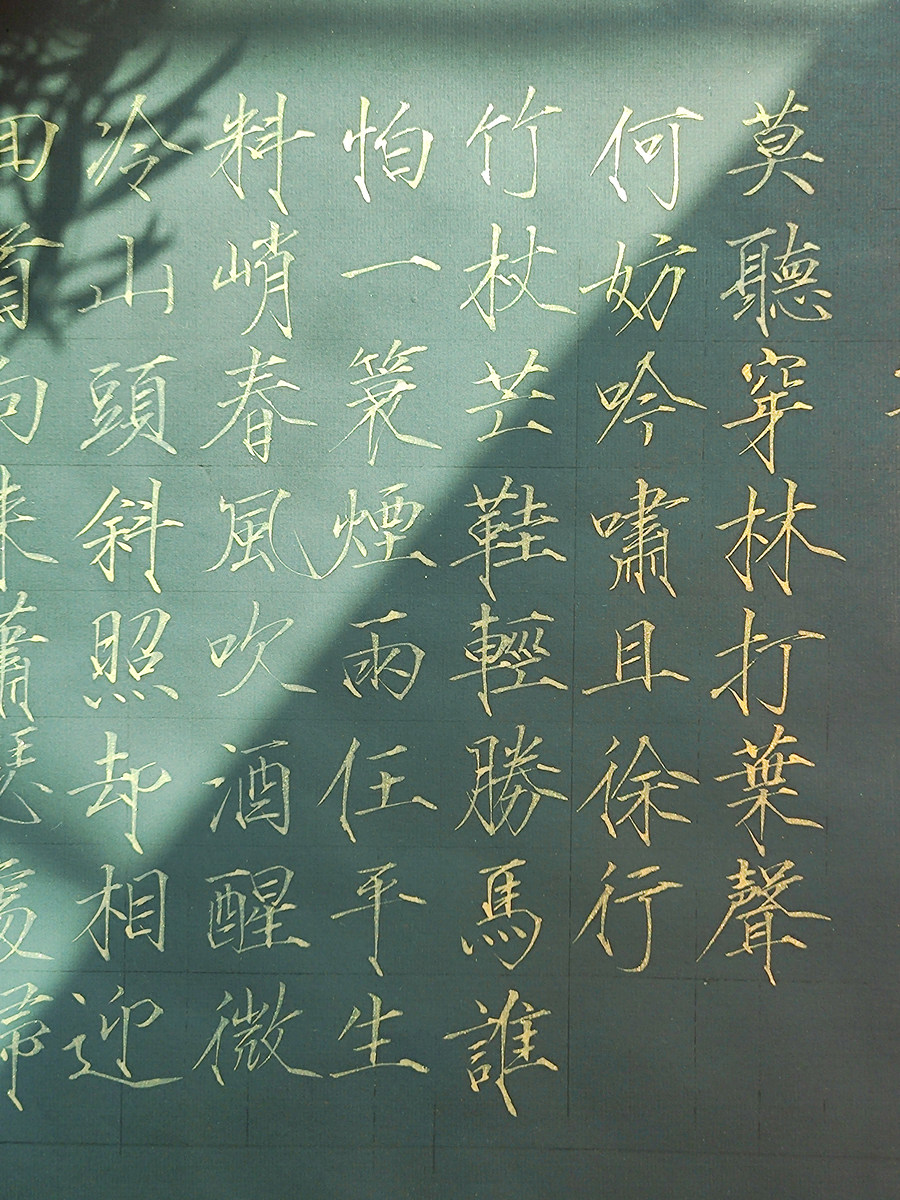 莫聽穿林打葉聲
何妨吟嘯且徐行
竹杖芒鞋輕勝馬誰
怕一簑煙雨任平生
料峭春風吹酒醒微
冷山頭斜照却相迎
回首向來蕭瑟處歸